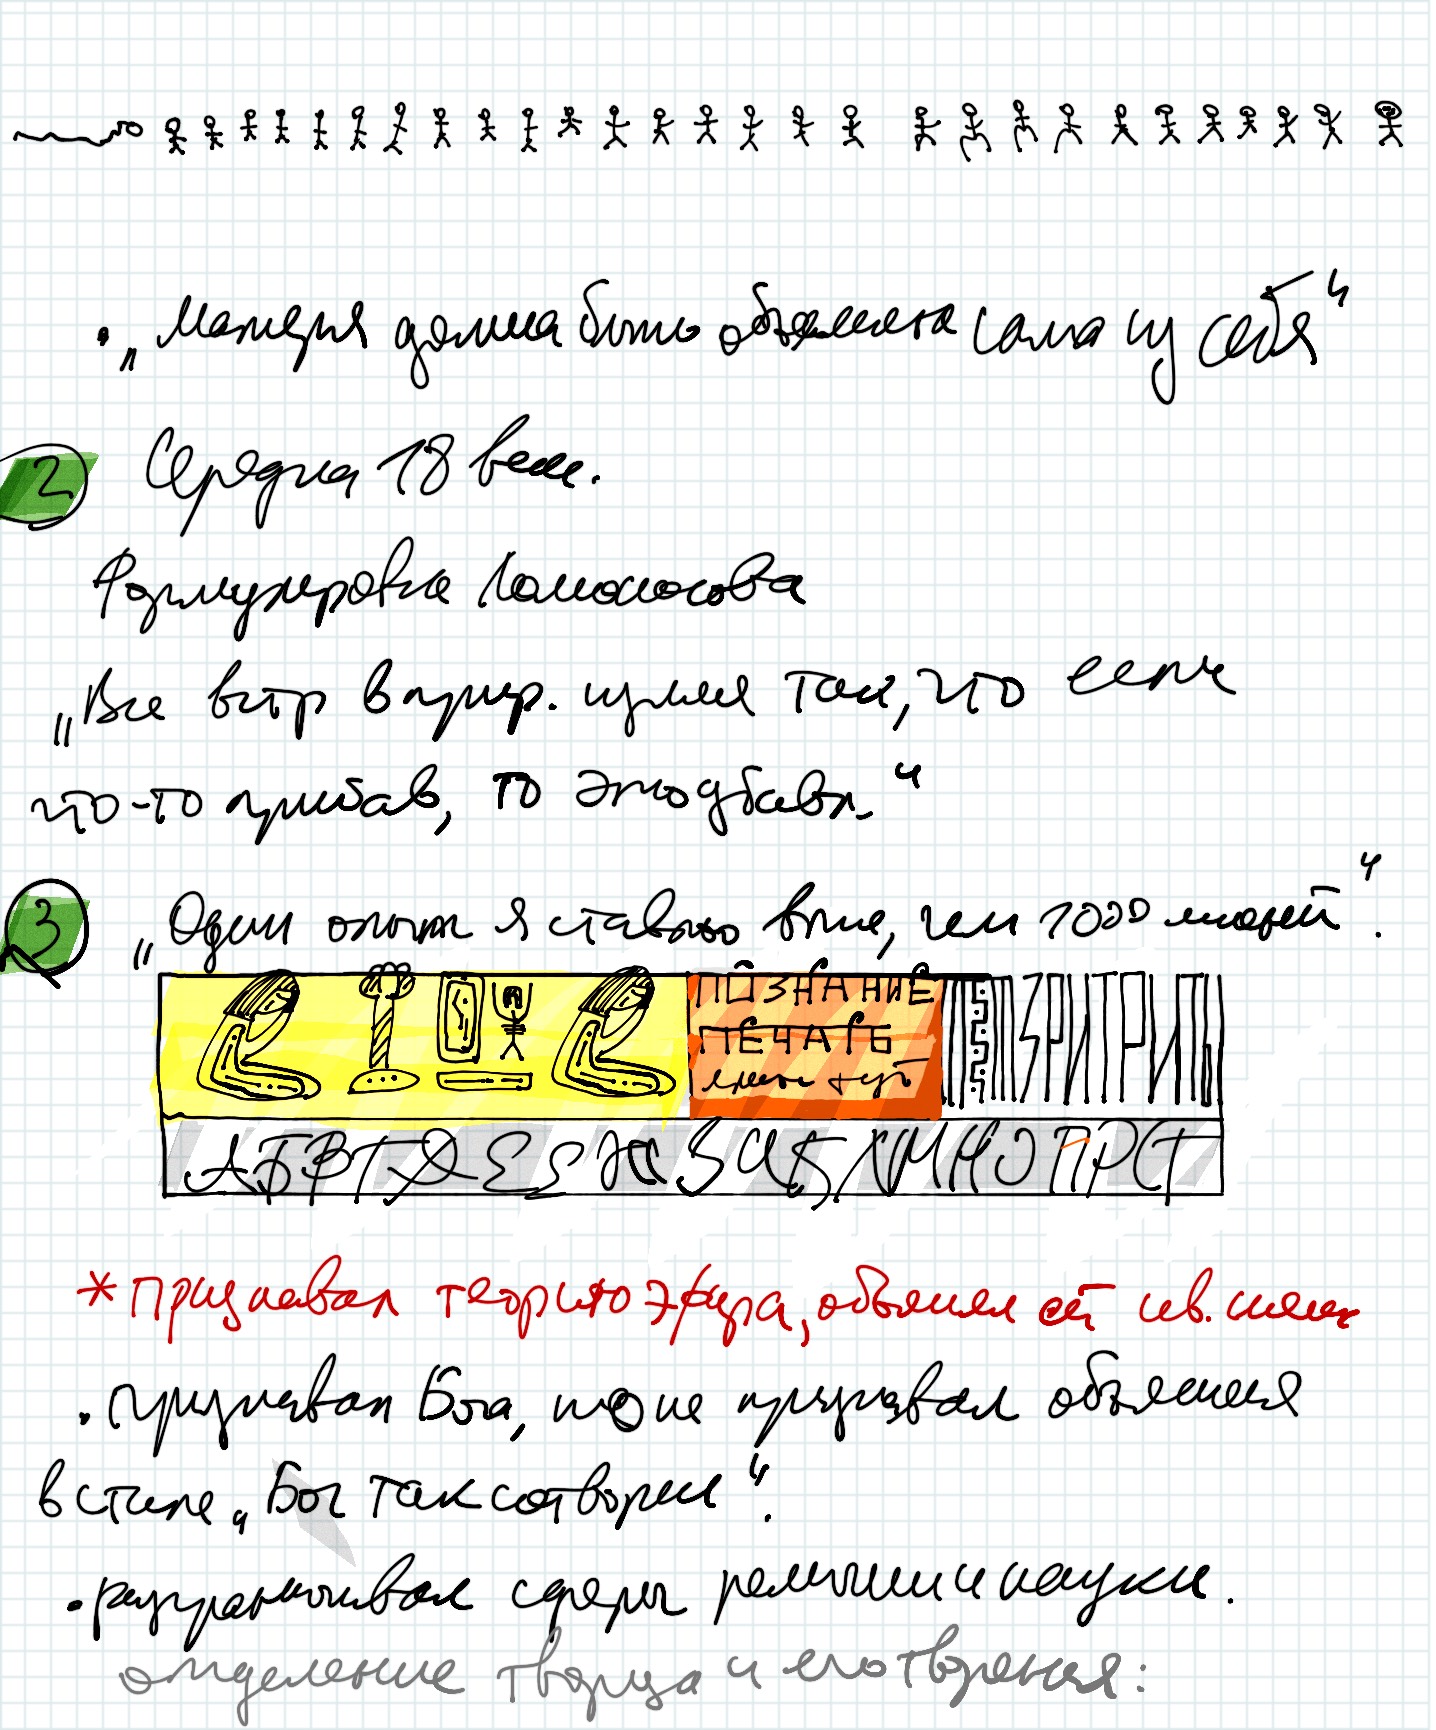 • „Материя должна быть объяснена сама из себя“
2 Середина 18 века.
Формулировка Ломоносова
„Все встр в прир. измен так, что если
что-то прибав, то это убавл.“
3 „Один опыт я ставлю выше, чем 1000 мнений“.
ПОЗНАНИЕ
ПЕЧАТЬ
ЗРИТРИТЬ
АБВГДЕЕЖЗИКЛМНОПРСТ
* Признавал теорию эфира, объяснял
• признавал Бога, но не признавал объяснения
в стиле „Бог так сотворил“.
• разграничивал сферы религии и науки.
отделение творца и его творения: